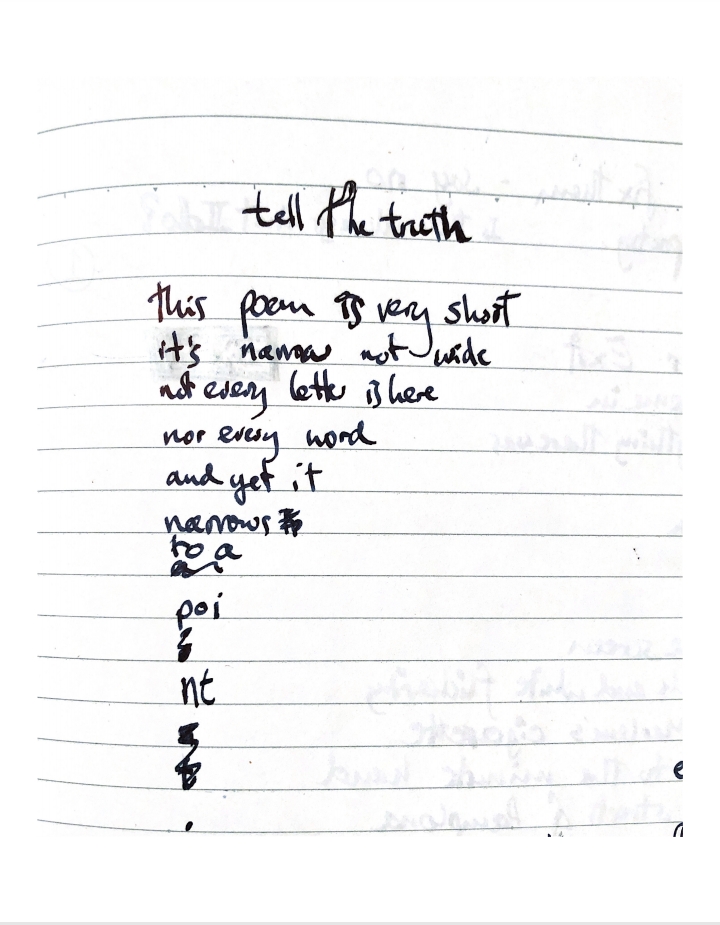 tell the truth
this poem is very short
it's narrow not wide
not every letter is here
nor every word
and yet it
narrows
to a
poi
nt
.